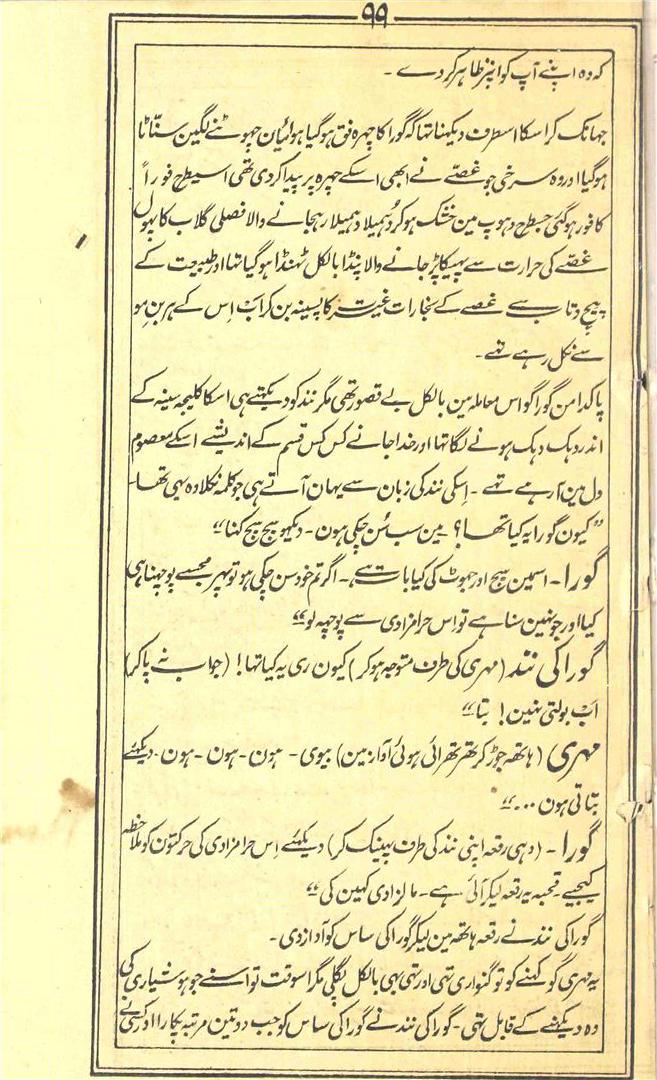 ۹۹
کہ وہ اپنے آپ کو انپر ظاہر کر دے ۔
جہانک کر اسکا اسطرف دیکہنا تہا کہ گورا کا چہرہ فق ہوگیا ہوائیان چہوٹنے لگین سناٹا
ہوگیا اور وہ سرخی جو غصّے نے ابھی اسکے چہرہ پر پیدا کر دی تھی اسیطرح فوراً
کافور ہوگئی جسطرح دہوپ مین خشک ہو کر ڈہیلا ڈہیلا رہجانے والا فصلی گلاب کا پہول
غصّے کی حرارت سے پہیکا پڑ جانے والا پنڈا بالکل ٹہنڈا ہوگیا تہا اور طبیعت کے
پیچ و تاب سے غصے کے بخارات غیرت کا پسینہ بن کر اب اِس کے ہر بنِ مو
سے نکل رہے تہے ۔
پاکدامن گورا گو اس معاملہ مین بالکل بے قصور تھی مگر نند کو دیکہتے ہی اسکا کلیجہ سینہ کے
اندر دہک دہک ہونے لگا تہا اور خدا جانے کس کس قسم کے اندیشے اسکے معصوم
دل مین آرہے تہے ۔ اِسکی نند کی زبان سے یہان آتے ہی جو کلمہ نکلا وہ یہی تھا۔
”کیون گورا یہ کیا تھا؟ مین سب سُن چکی ہون ۔ دیکہو سچ سچ کہنا“
گورا ۔ اسمین سچ اور جہوٹ کی کیا بات ہے ۔ اگر تم خود سن چکی ہو تو پہر مجسے پوچہنا ہی
کیا اور جو نہین سنا ہے تو اس حرامزادی سے پوچہہ لو“
گورا کی نند (مہری کی طرف متوجہ ہو کر) کیون ری یہ کیا تہا! (جواب نہ پا کر)
اب بولتی نہین! بتا“
مہری (ہاتھہ جوڑ کر تھر تھرائی ہوئی آواز مین) بیوی ۔ ہون ۔ ہون ۔ ہون ۔ دیکہئے
بتاتی ہون ...“
گورا ۔ (وہی رقعہ اپنی نند کی طرف پہینک کر) دیکہئے اِس حرامزادی کی حرکتون کو ملاحظہ
کیجیے ۔ قحبہ یہ رقعہ لیکر آئی ہے ۔ مالزادی کہین کی“
گورا کی نند نے رقعہ ہاتھہ مین لیکر گورا کی ساس کو آواز دی ۔
یہ مہری گو کہنے کو تو گنواری تہی اور تہی بہی بالکل پگلی مگر اسوقت تو اسنے جو ہوشیاری کی
وہ دیکہنے کے قابل تہی ۔ گورا کی نند نے گورا کی ساس کو جب دو تین مرتبہ پکارا اور کسی نے